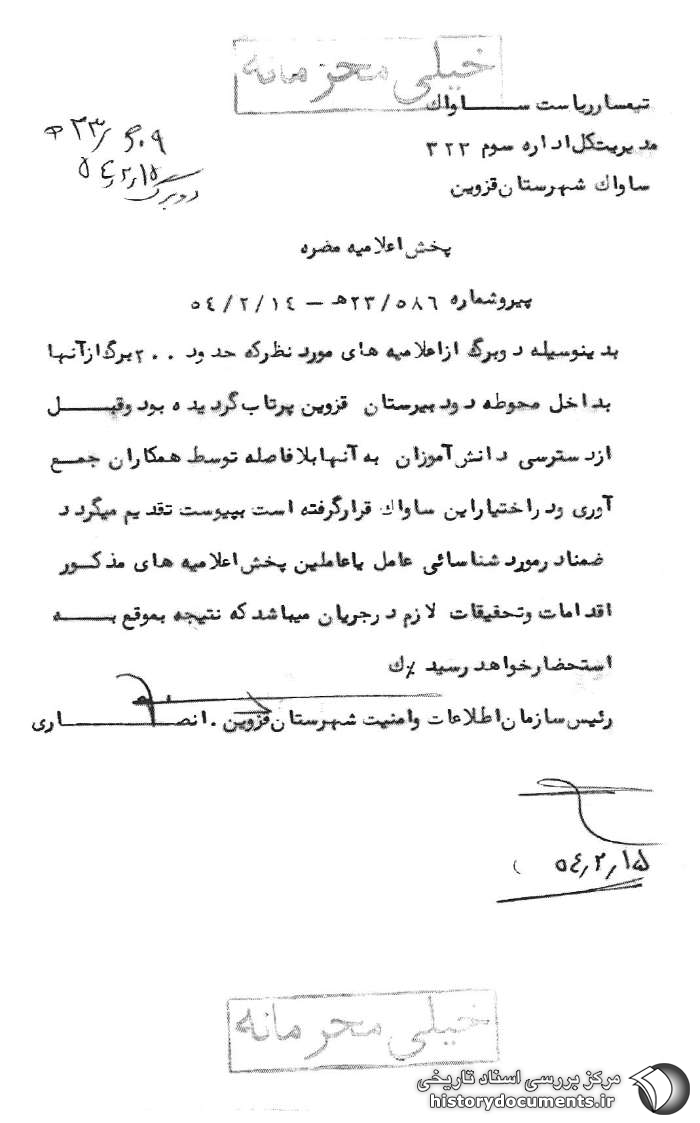 خیلی محرمانه
تیمسار ریاست ســـــاواك
مدیریت کل اداره سوم ۳۲۲
ساواك شهرستان قزوین
۲۳/۶۰۹ ه
۵۴٫۲٫۱۵
دو برگ
پخش اعلامیه مضره
پیرو شماره ۲۳/۵۸۶ ه‍ - ۵۴/۲/۱۴
بدینوسیله دو برگ از اعلامیه های مورد نظر که حدود ۲۰۰ برگ از آنها
بداخل محوطه دو دبیرستان قزوین پرتاب گردیده بود و قبـــل
از دسترسی دانش آموزان به آنها بلافاصله توسط همکاران جمـع
آوری و در اختیار این ساواك قرار گرفته است بپیوست تقدیم میگردد
ضمنا در مورد شناسائی عامل یا عاملین پخش اعلامیه های مذکــور
اقدامات و تحقیقات لازم در جریان میباشد که نتیجه بموقع بـــه
استحضار خواهد رسید٪ ك
رئیس سازمان اطلاعات و امنیت شهرستان قزوین . انصـــــاری
۵۴٫۲٫۱۵
خیلی محرمانه
مرکز بررسی اسناد تاریخی
historydocuments.ir